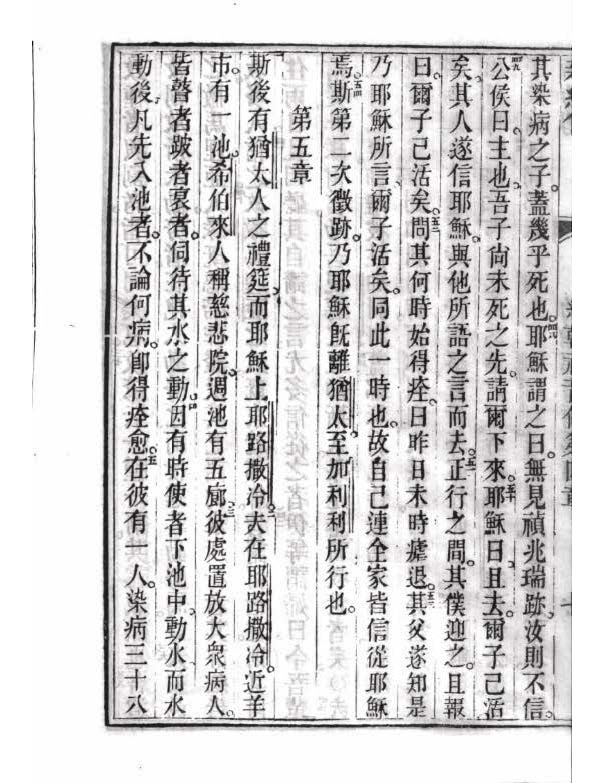 其染病之子。蓋幾乎死也。四八耶穌謂之曰。無見禎兆瑞跡、汝則不信。
四九公侯曰。主也。吾子尚未死之先。請爾下來。五十耶穌曰。且去。爾子已活
矣。其人遂信耶穌與他所語之言而去。五一正行之間。其僕迎之。且報
曰。爾子已活矣。五二問其何時始得痊。曰昨日未時瘧退。五三其父遂知是
乃耶穌所言。爾子活矣。同此一時也。故自己連全家皆信從耶穌
焉。五四斯第二次徵跡。乃耶穌旣離猶太。至加利利所行也。
第五章
斯後有猶太人之禮筵。而耶穌上耶路撒冷。二夫在耶路撒冷。近羊
市。有一池。希伯來人稱慈悲院。週池有五廊。三彼處置放大衆病人。
皆瞽者跛者衰者。伺待其水之動。四因有時使者下池中、動水而水
動後。凡先入池者。不論何病。卽得痊愈。五在彼有一人。染病三十八